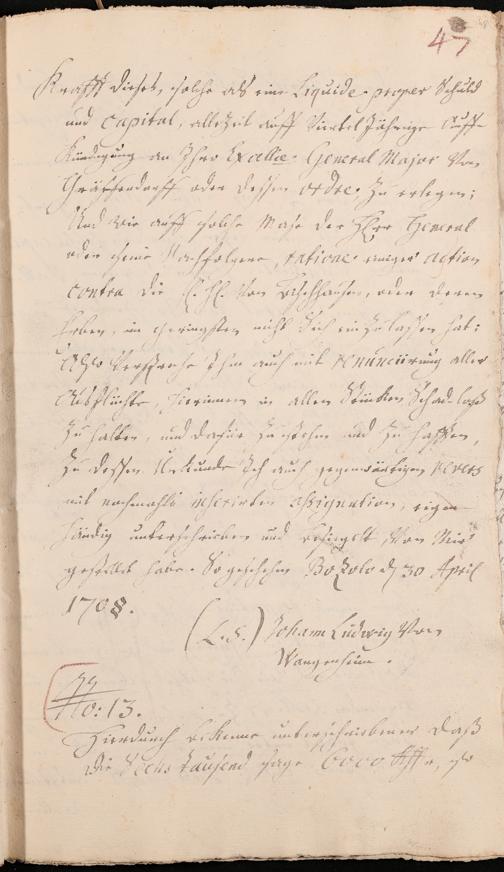 47
Krafft dieses, solche als eine Liquide proper Schuld
und Capital, allezeit auff Viertel Jährige Auff-
kündigung an Ihro Excellce. General Major von
oder dessen ordre zu erlegen;
Und wie auff solche Mase der Herr General
oder seine Nachfolgere, ratione einiger action
contra die von oder deren
Erben, im geringsten nicht Sich einzulassen hat;
Also Verspreche Ihm auch mit renunciirung aller
Ausflüchte, hierinnen in allen Stücken Schad-loß
zu halten, und dafür zu stehen und zu hafften,
Zu dessen Uhrkunde Ich auch gegenwärtigen revers
mit nochmahls inserirten assignation, eigen-
händig unterschrieben und besiegelt, von Mir
gestellet habe. So geschehen den 30 April
1708.
(L.S.) Johann Ludwig Von
Wangenheim.
No: 13.
Hierdurch bekenne unterschriebener daß
die Sechs tausend sage 6000 so